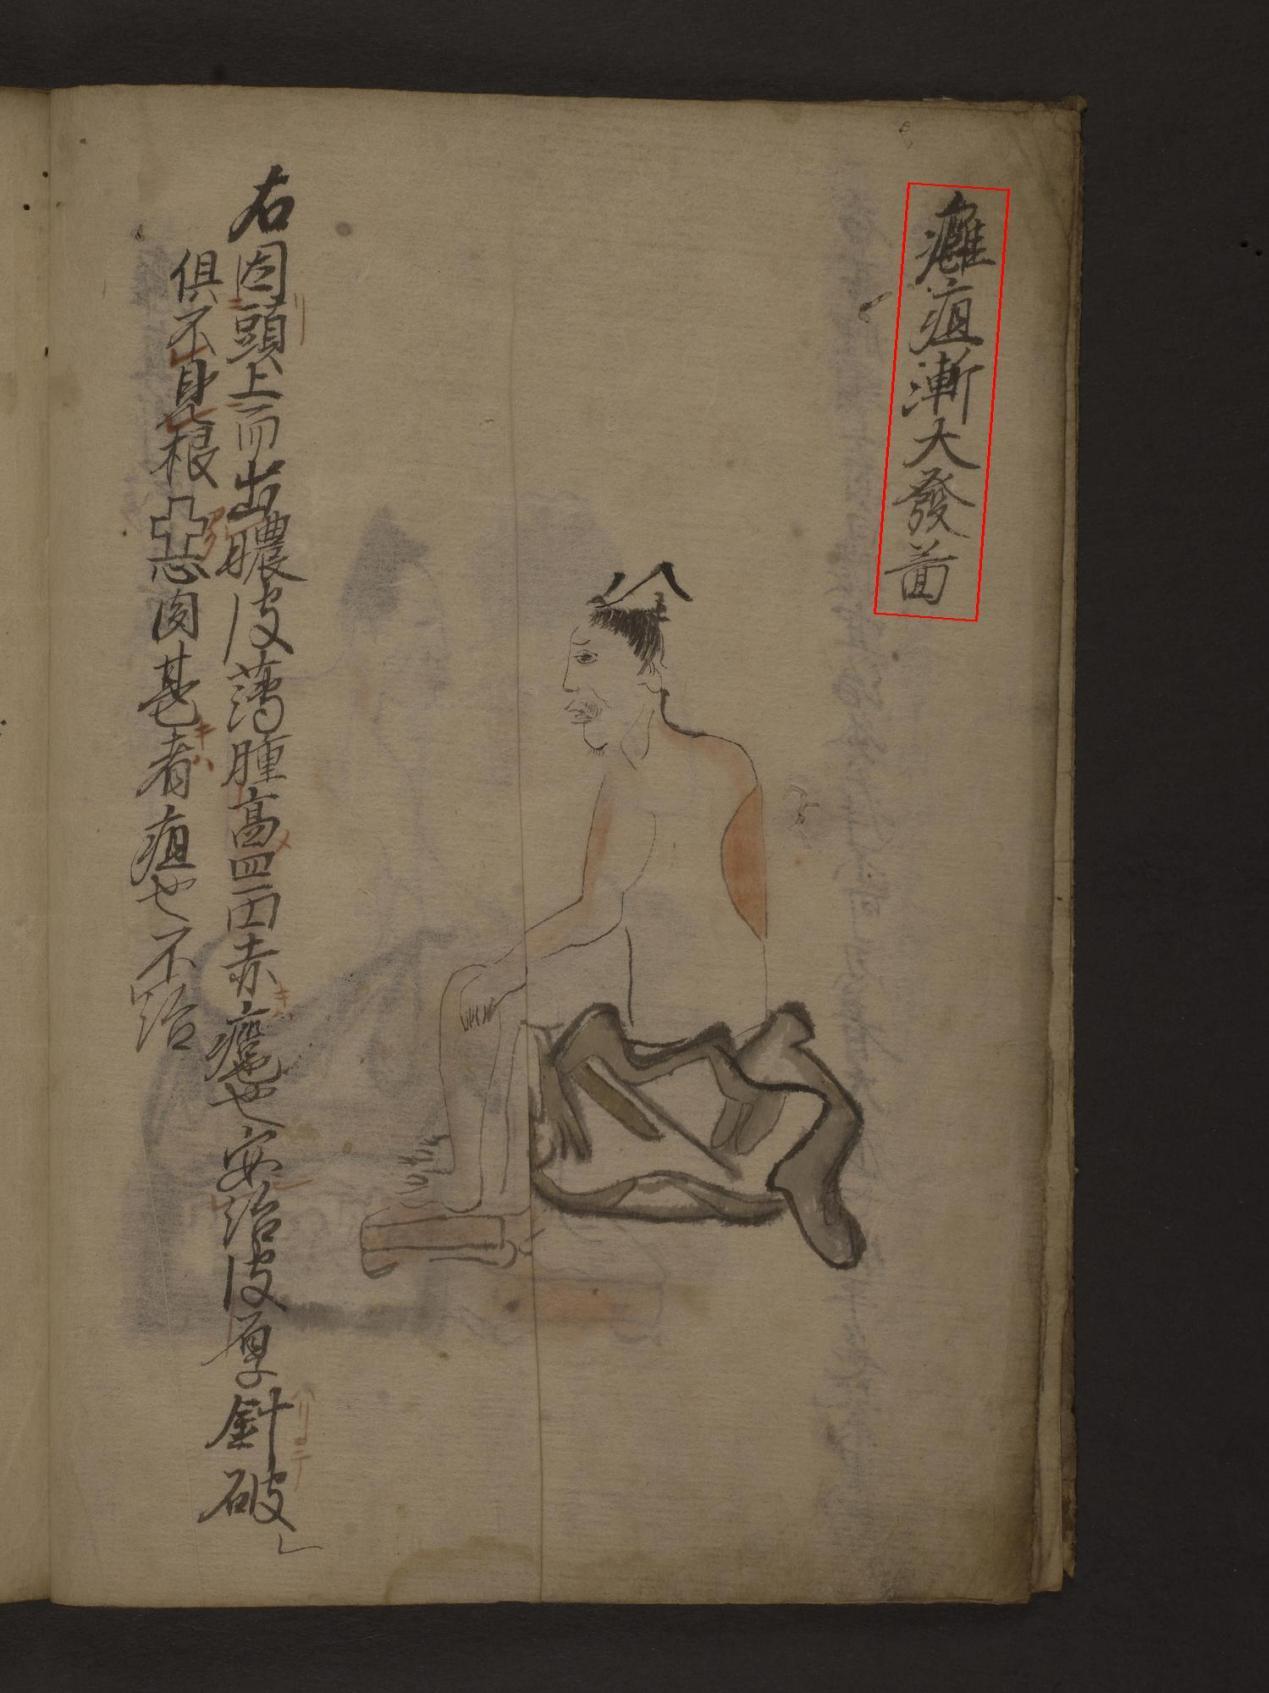 癰疽漸大發啚
右肉頭上而出膿皮薄腫高四面赤癰也安治皮厚針破
俱不見根惡肉甚者疽也不治